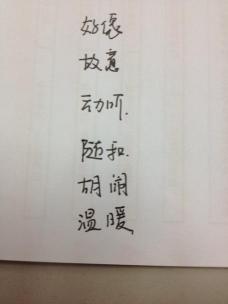 好像
故意
动听.
随和.
胡闹
温暖